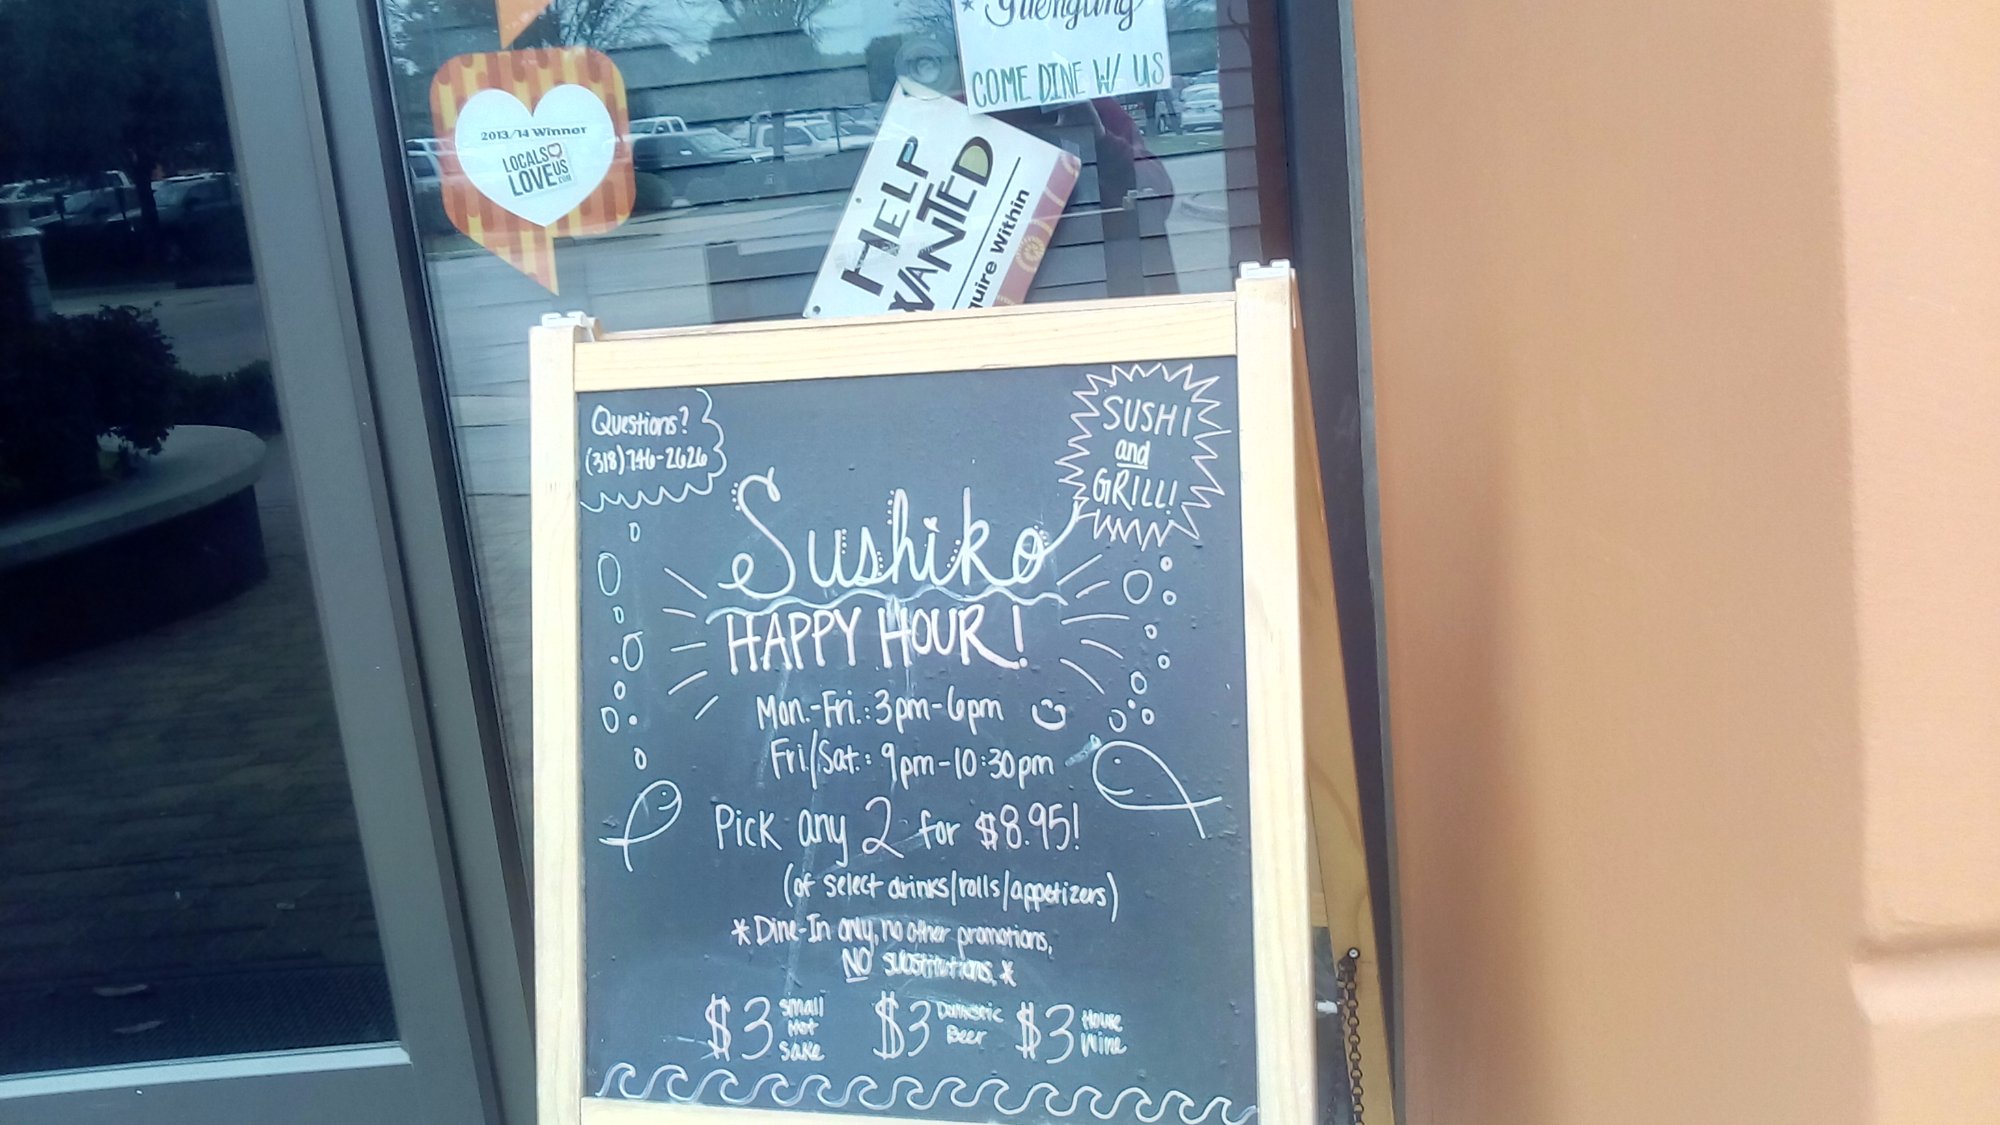 * Yuengling
COME DINE W/ US
2013/14 Winner
LOCALS
LOVE US
.COM
HELP
WANTED
quire Within
Questions?
(318) 746-2626
SUSHI
and
GRILL!
Sushiko
HAPPY HOUR!
Mon.-Fri.: 3pm-6pm
Fri/Sat.: 9pm-10:30pm
Pick any 2 for $8.95!
(of select drinks/rolls/appetizers)
*Dine-In only, no other promotions,
NO substitutions.*
$3 Small
Hot
Sake
$3 Domestic
Beer
$3 House
Wine